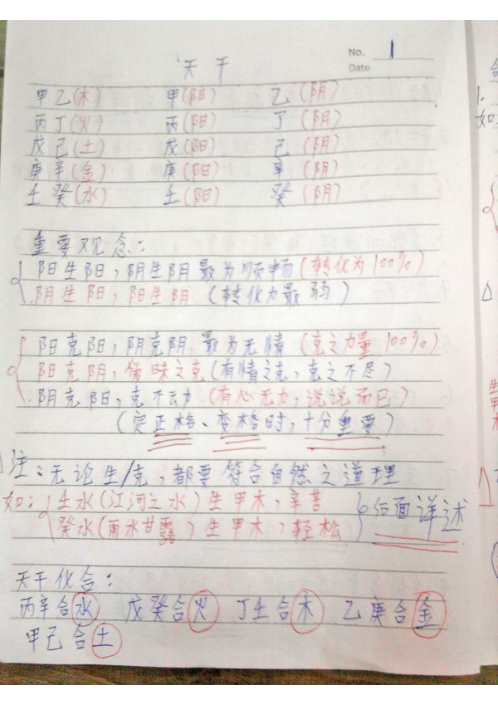 No. 1
Date
天干
甲乙(木) 甲(阳) 乙(阴)
丙丁(火) 丙(阳) 丁(阴)
戊己(土) 戊(阳) 己(阴)
庚辛(金) 庚(阳) 辛(阴)
壬癸(水) 壬(阳) 癸(阴)
重要观念:
阳生阳,阴生阴最为顺畅(转化为100%)
阴生阳,阳生阴(转化力最弱)
阳克阳,阴克阴最为无情(克之力量100%)
阳克阴,暧昧之克(有情之克,克之不尽)
阴克阳,克不云力(有心无力,说说而已)
(定正格、变格时,十分重要)
注:无论生/克,都要符合自然之道理
如:壬水(江河之水)生甲木,辛苦
癸水(雨水甘露)生甲木,轻松
后面详述
天干化合:
丙辛合水 戊癸合火 丁壬合木 乙庚合金
甲己合土